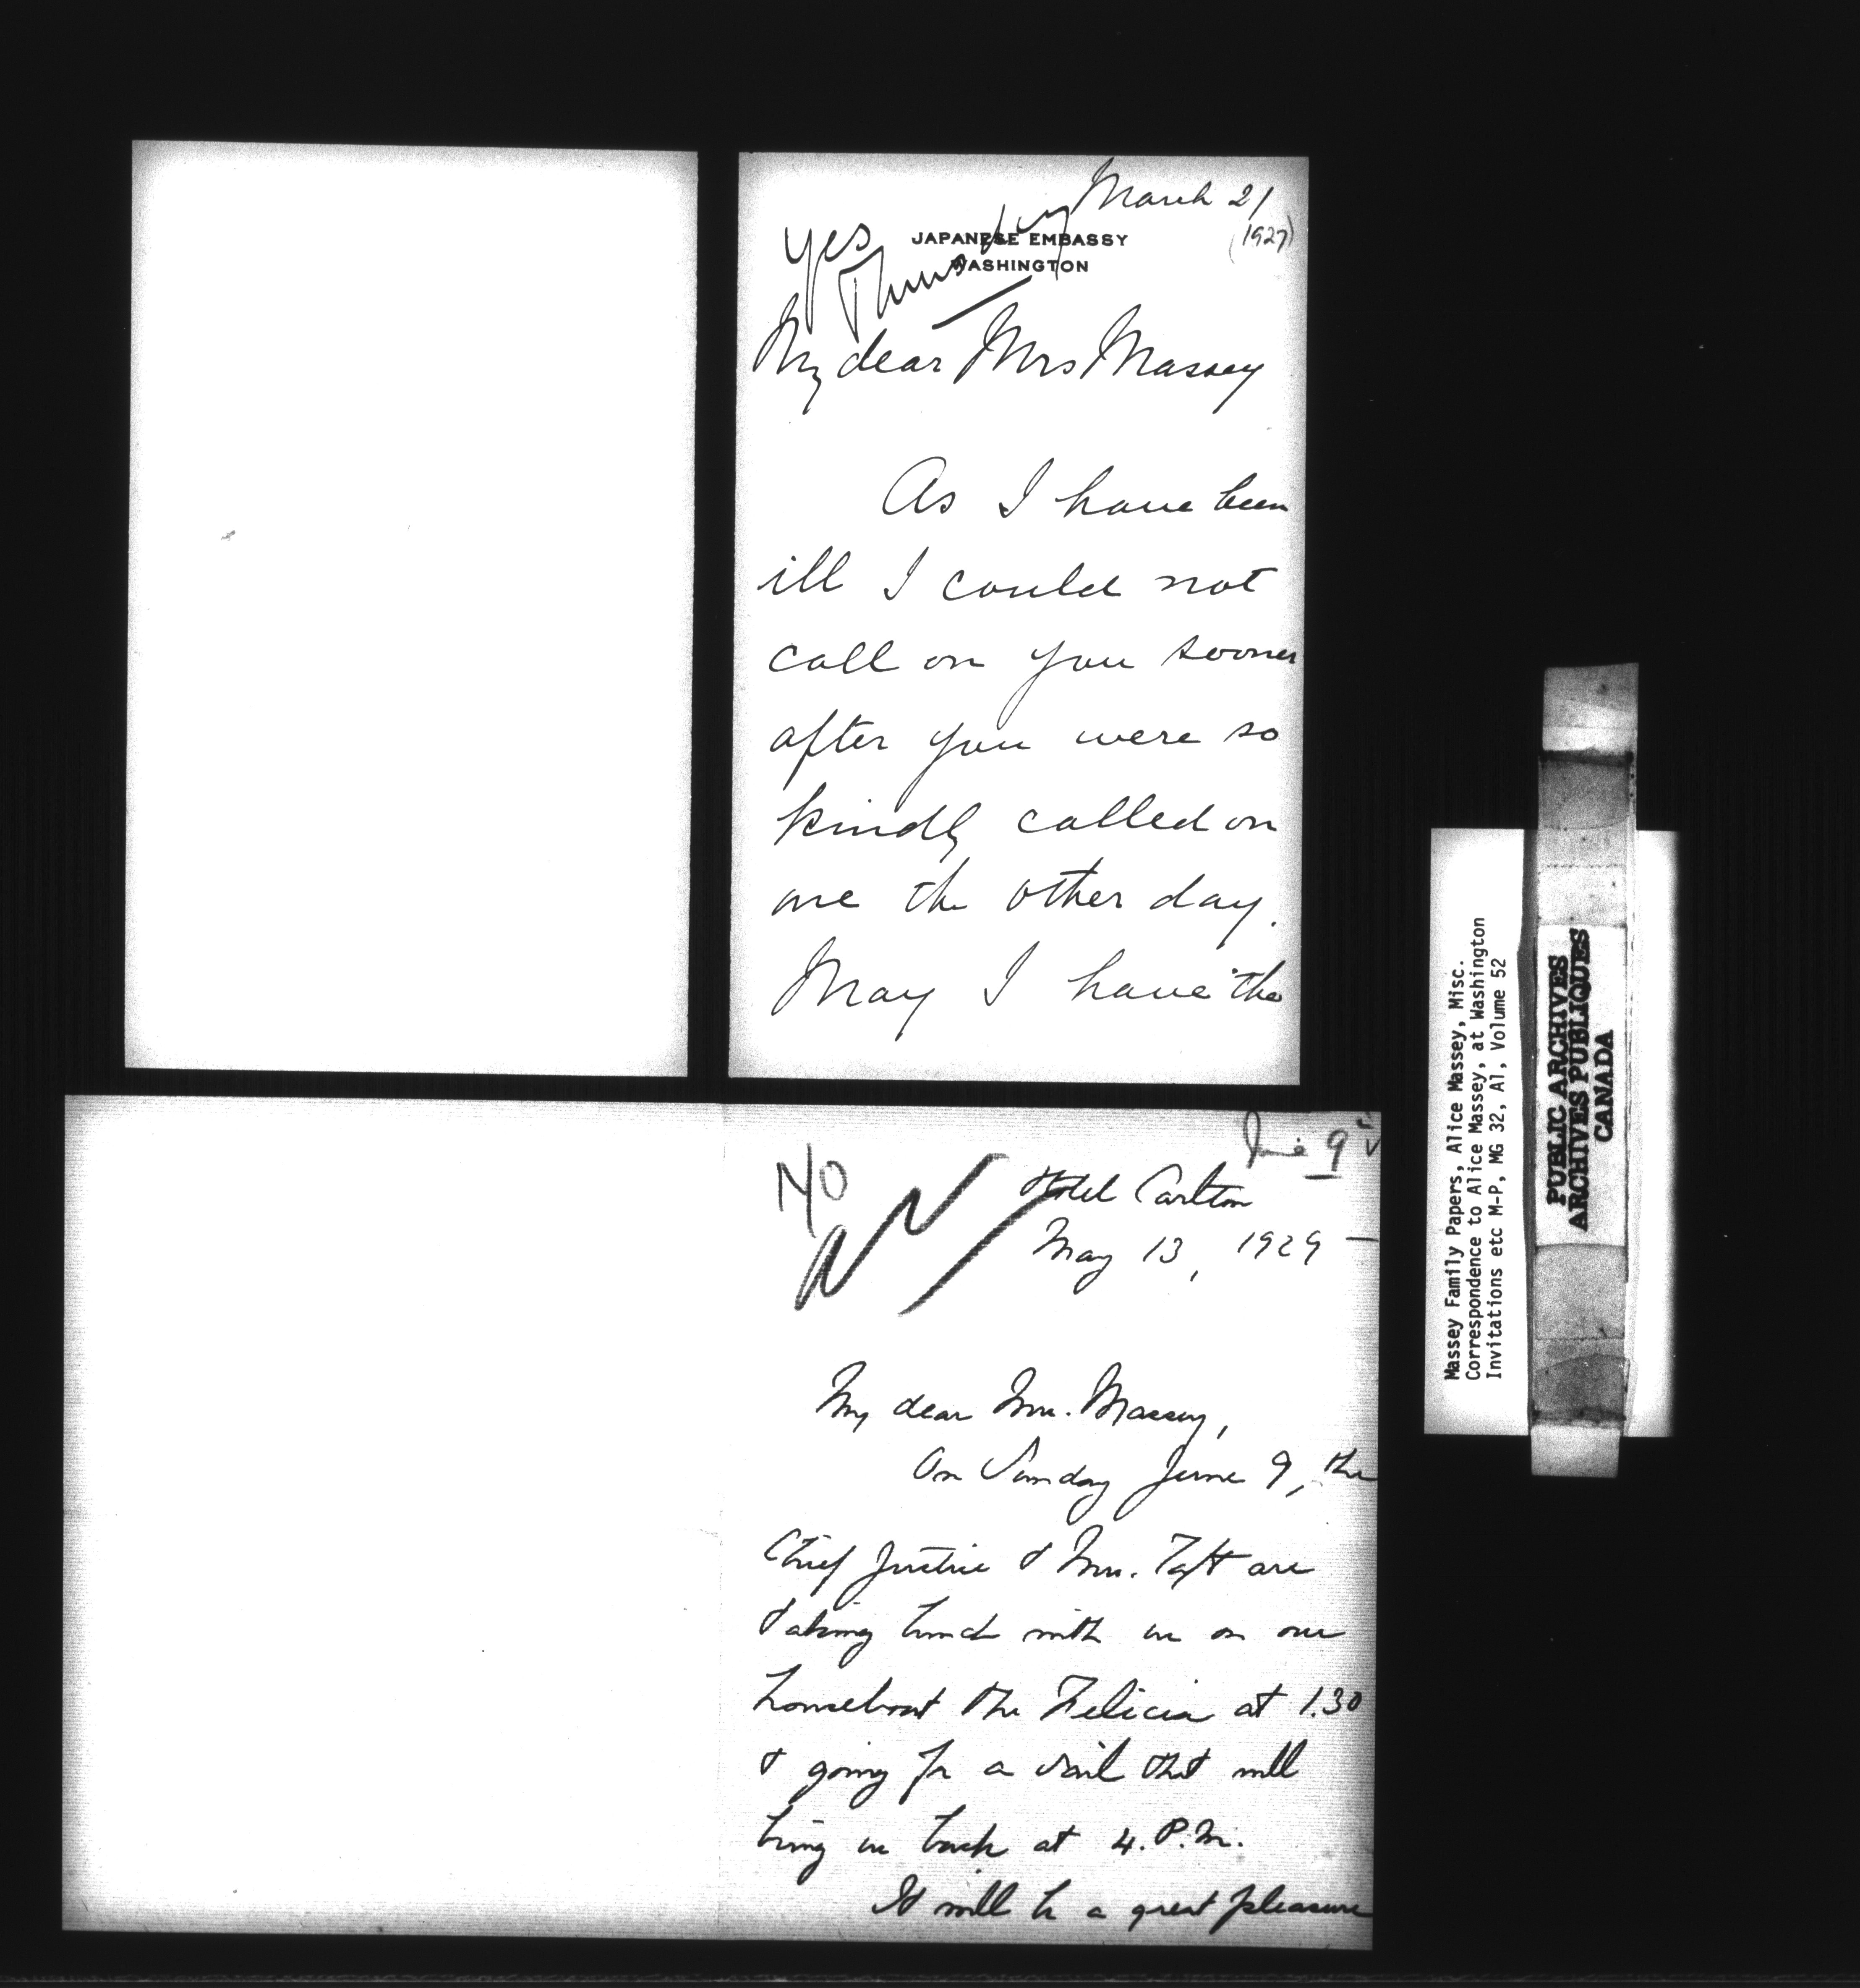 March 21
(1927)
yes
Thursday
JAPANESE EMBASSY
WASHINGTON
My dear Mrs Massey
As I have been
ill I could not
call on you sooner
after you were so
kindly called on
me the other day.
May I have the
June 9
No
Hotel Carlton
May 13, 1929 —
My dear Mrs. Massey,
On Sunday June 9, the
Chief Justice & Mrs. Taft are
taking lunch with us on our
houseboat the Felicia at 1.30
& going for a sail that will
bring us back at 4. P.M.
It will be a great pleasure
Massey Family Papers, Alice Massey, Misc.
Correspondence to Alice Massey, at Washington
Invitations etc M-P, MG 32, A1, Volume 52
PUBLIC ARCHIVES
ARCHIVES PUBLIQUES
CANADA